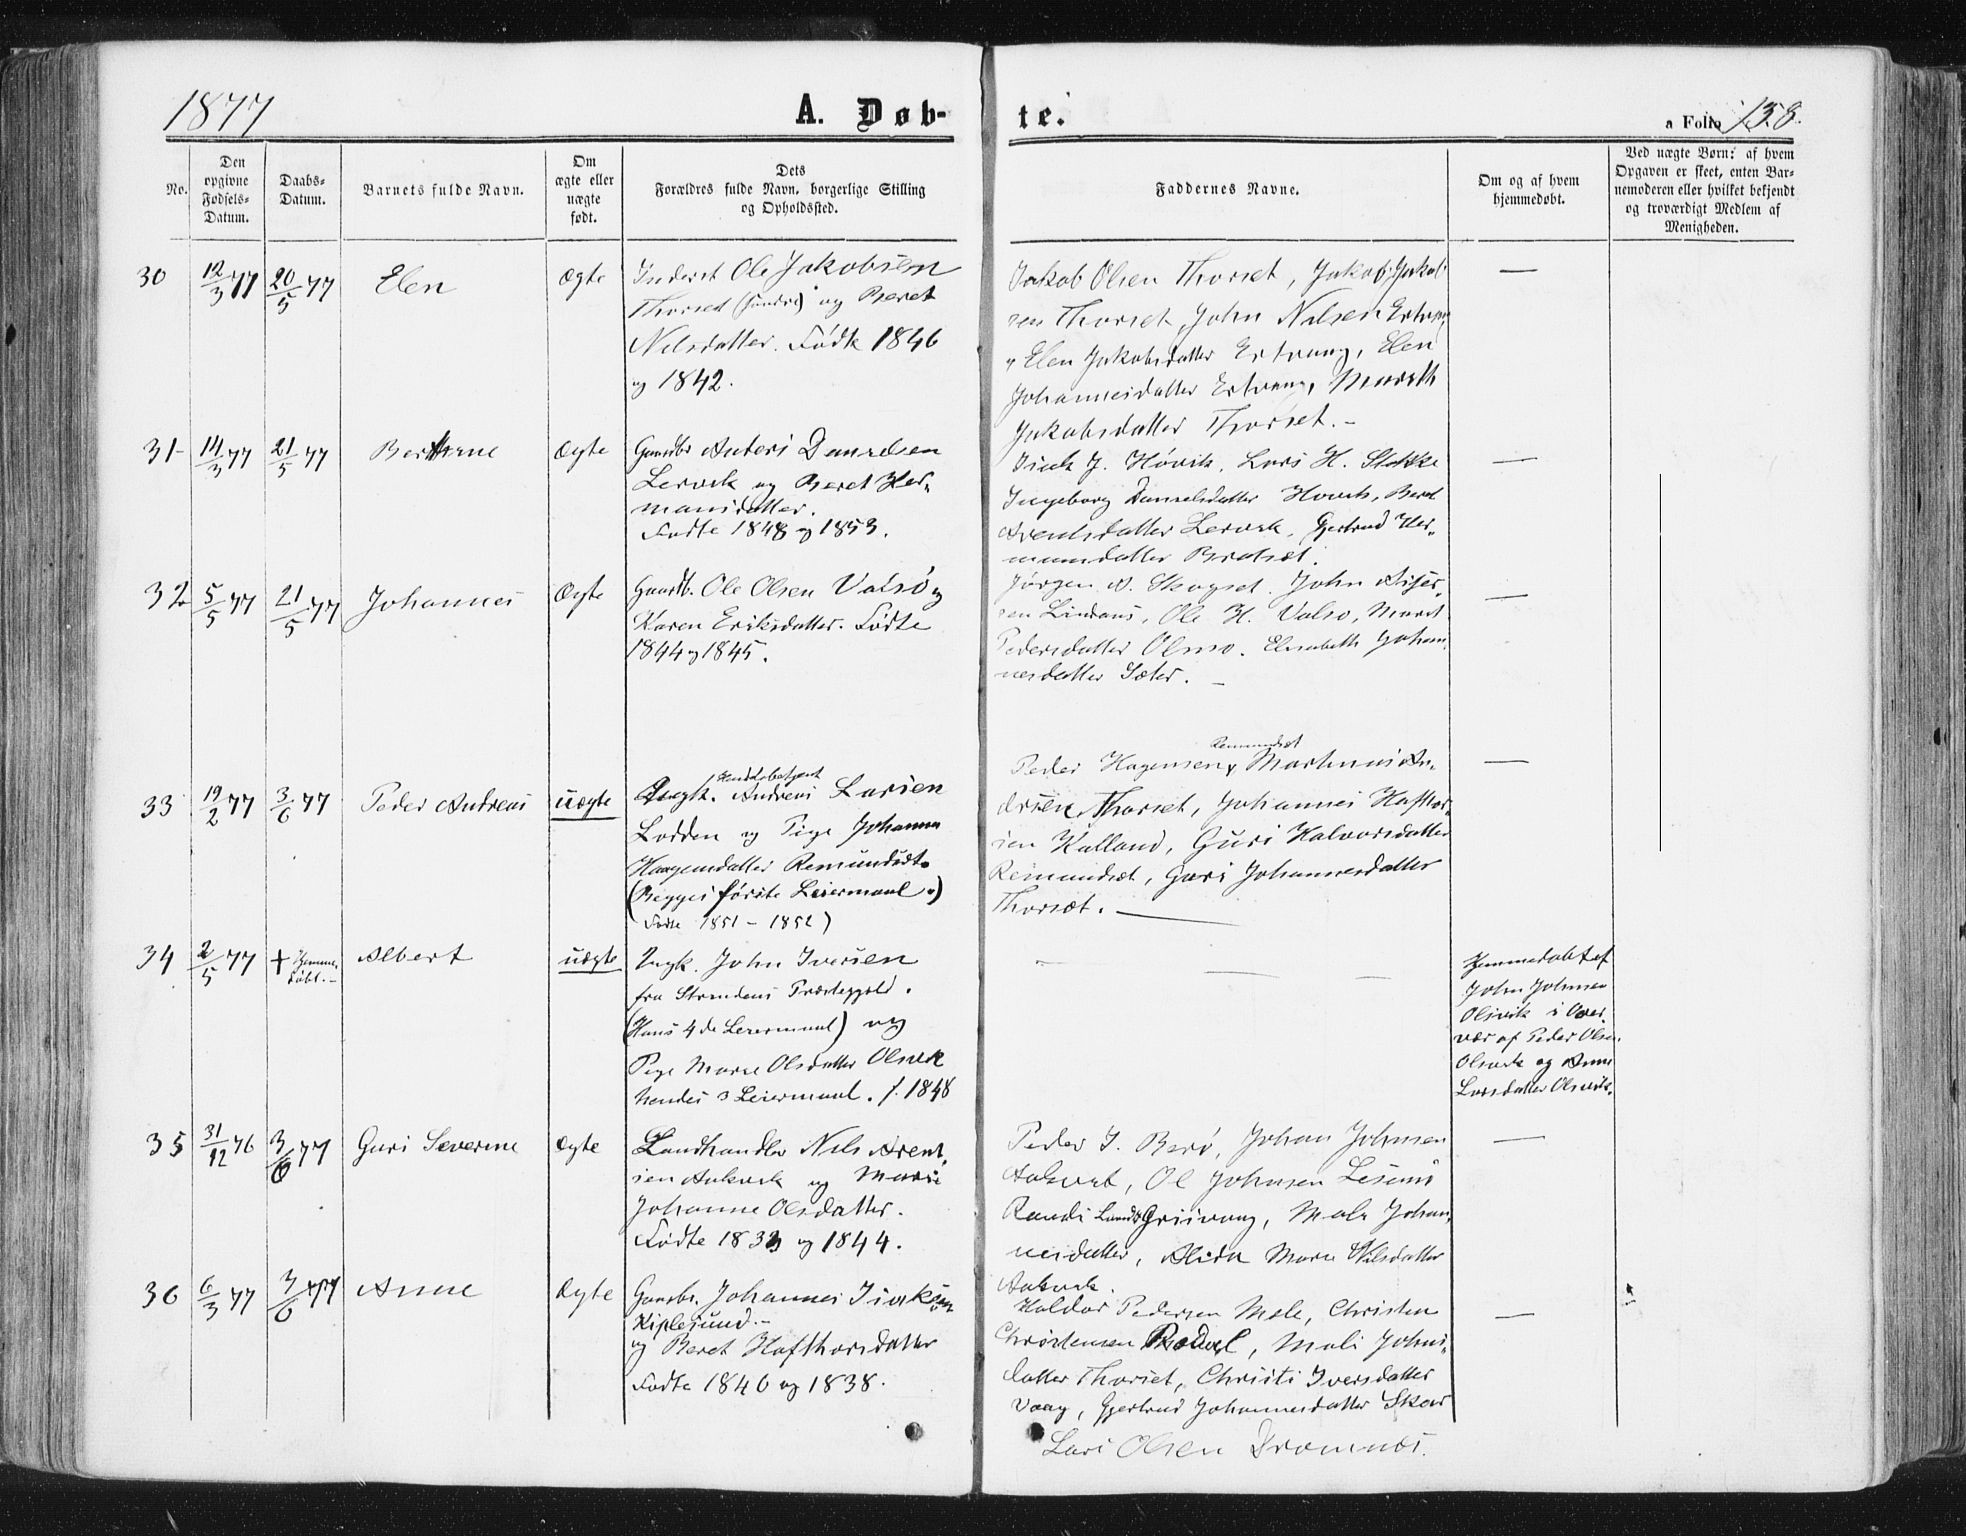 1877
A. Døb-
te.
a Folio 158.
No.
Den opgivne Fødsels-Datum.
Daabs-Datum.
Barnets fulde Navn.
Om ægte eller uægte født.
Dets Forældres fulde Navn, borgerlige Stilling og Opholdssted.
Faddernes Navne.
Om og af hvem hjemmedøbt.
Ved uægte Børn: af hvem Opgaven er skeet, enten Barnemoderen eller hvilket bekjendt og troværdigt Medlem af Menigheden.
30 12/3 77 20/5 77 Elen ægte
Inderst Ole Jakobsen
Thorset (søndre) og Beret
Nilsdatter. Fødte 1846
og 1842.
Jakob Olsen Thorset, Jakob Jakob-
sen Thorset, John Nilsen Ertvaag
Elen Jakobsdatter Ertvaag, Elen
Johannesdatter Ertvaag, Mareth
Jakobsdatter Thorset. -
31 14/3 77 21/5 77 Berthine ægte
Gaardbr Anders Danielsen
Lervik og Beret Her-
mansdatter.
Fødte 1848 og 1853.
Isak J. Hövik, Lars H. Stokke
Ingeborg Danielsdatter Hovik, Beret
Arentsdatter Lervik, Gjertrud Her-
mansdatter Bratset.
32 5/5 77 21/5 77 Johannes Ægte
Gaardb. Ole Olsen Valsö og
Karen Eriksdatter. Fødte
1844 og 1845.
Jörgen A. Skogset. John
Ole H. Valsö, Marit
Pedersdatter Olmo. Elisabeth Johan-
nesdatter Sæter. -
33 19/2 77 3/6 77 Peder Andreas uægte
Ungk. Andreas Larsen
Lodden og Pige Johanna
Haagensdatter Remundset.
(Begges første Leiermaal.)
Fødte 1851 - 1852)
Remundset
Peder Hagensen, Martinus An-
dersen Thorset, Johannes Hafthor-
sen Kalland, Guri Halvorsdatter
Remundset, Guri Johannesdatter
Thorset.
34 2/5 77 † Hjemme-
døbt. -
Albert uægte
Ungk. John Iversen
fra Strandens Præstegjeld.
(Hans 4de Leiermaal) og
Pige Marie Olsdatter Olsvik
hendes 3 Leiermaal. f. 1848
Hjemmedøbt af
John Johnsen
Olsvik i Over-
vær af Peder Olsen
Olsvik og Anne
Larsdatter Olsvik.
35 31/12 76 3/6 77 Guri Severine ægte
Landhandler Nils Arent-
sen Aakvik og Marie
Johanne Olsdatter.
Fødte 1833 og 1844.
Peder I. Berö, Johan Johnsen
Aakvik, Ol Johnsen Lesund
Randi Grisvaag, Mali Johan-
nesdatter, Alida Marie Nilsdatter
Aakvik.
36 6/3 77 3/6 77 Anne Ægte
Gaardbr. Johannes Isaksen
Kiplesund. -
og Beret Hafthorsdatter
Fødte 1846 og 1838.
Haldor Pedersen Mele, Christen
Christensen Rodal, Mali Johns-
datter Thorset, Christi Iversdatter
Vaag, Gjertrud Johannesdatter Skar
Lars Olsen Dromnes.